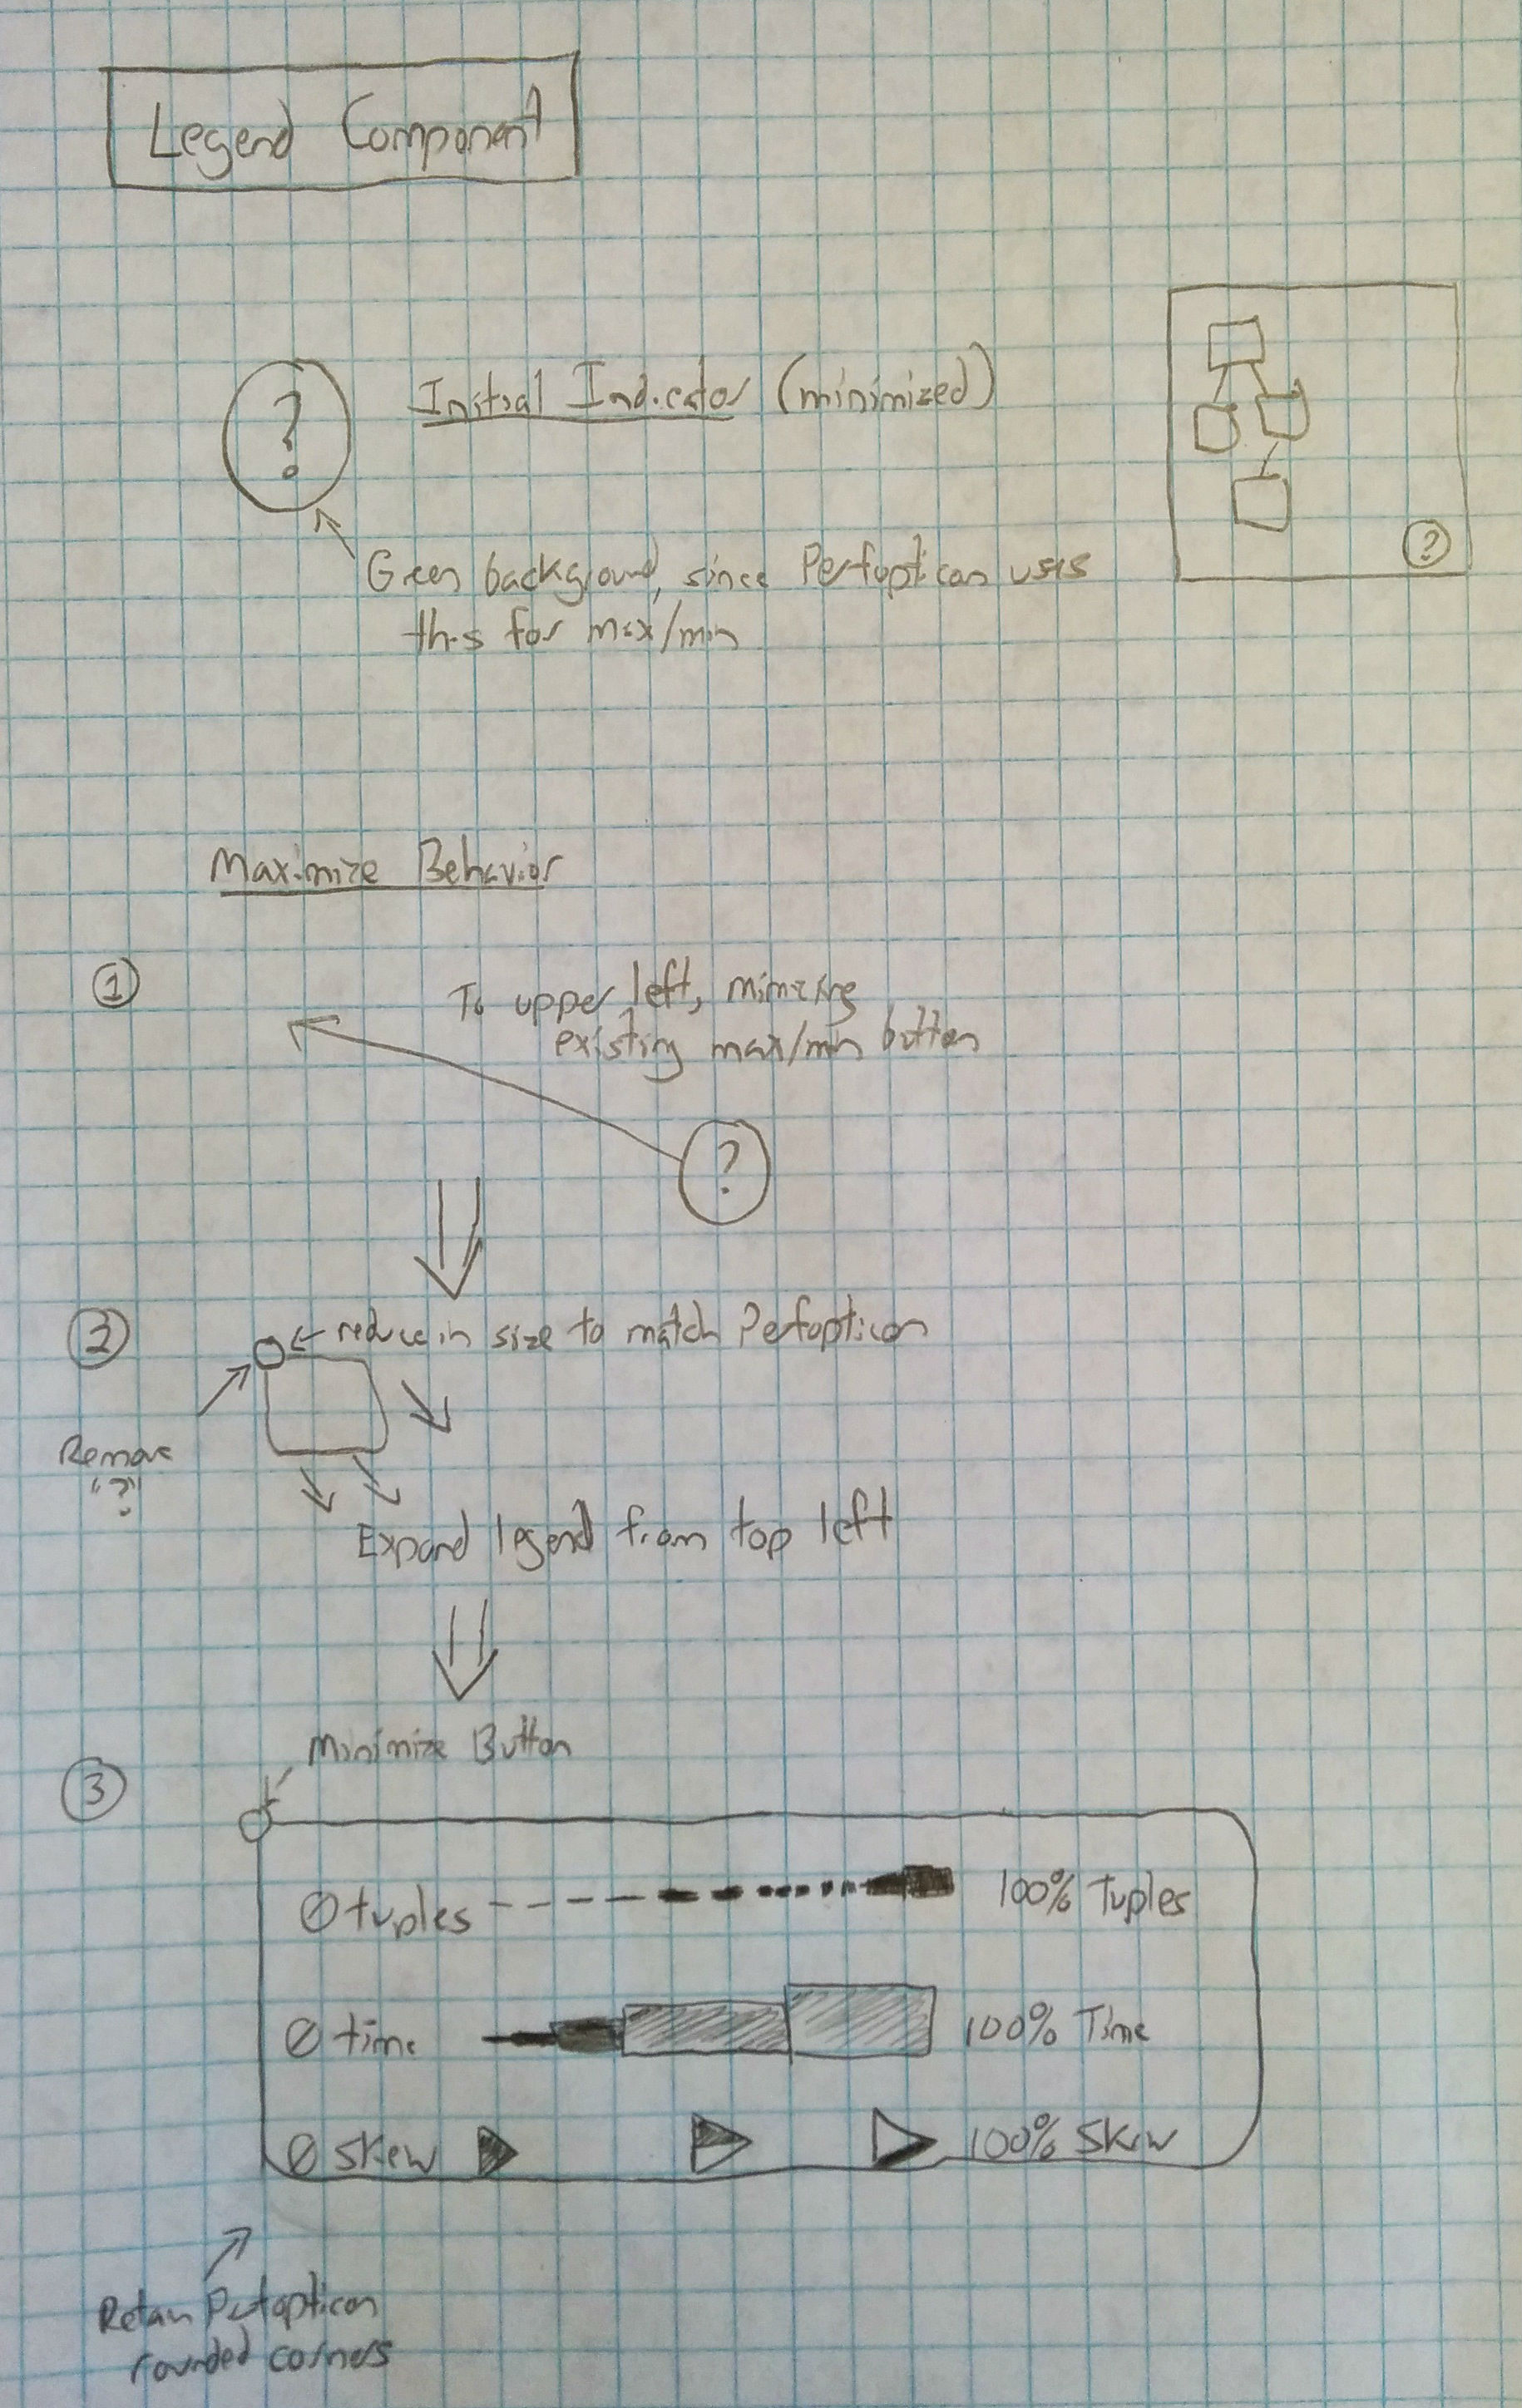 Legend Component
?
Initial Indicator (minimized)
Green background, since Perfopticon uses
this for max/min
?
Maximize Behavior
1
To upper left, mimicking
existing max/min button
?
2
reduce in size to match Perfopticon
Remove
"?"
Expand legend from top left
3
Minimize Button
0 tuples
100% Tuples
0 time
100% Time
0 skew
100% Skew
Retain Perfopticon
rounded corners